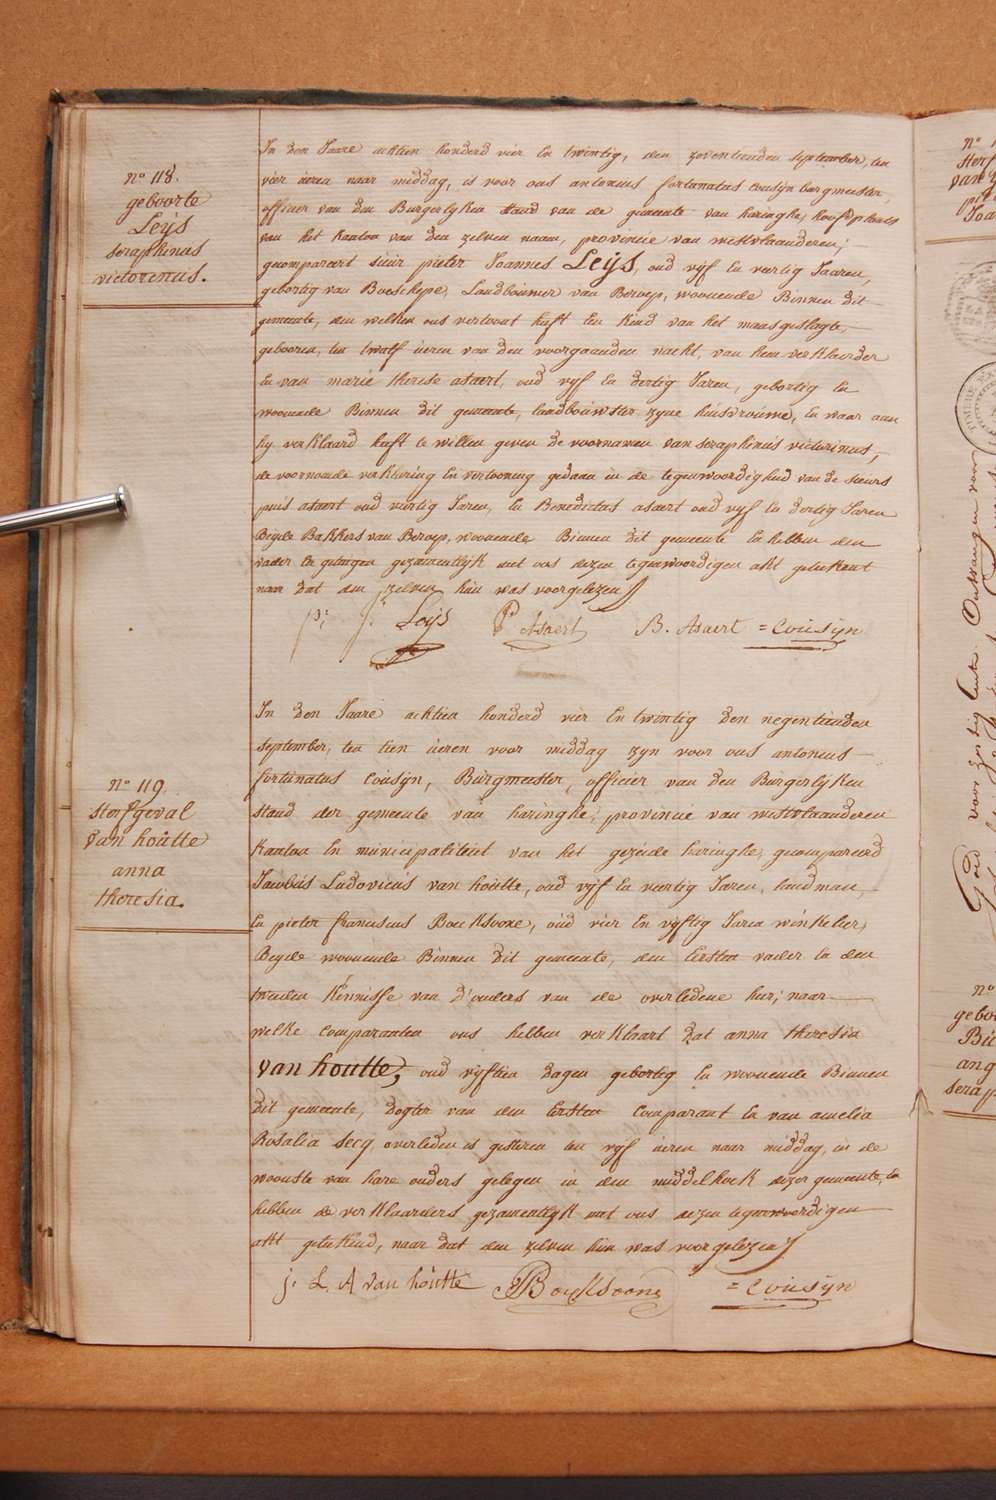 N° 118.
geboorte
Leijs
seraphinus
victorinus.
In den Jaare achtien honderd vier en twintig, den zeventienden september, ten
vier ueren naar middag, is voor ons antonius fortunatus cousijn borgmeester,
officier van den Burgerlyken stand van de gemeente van haringhe, hoofdplaats
van het kanton van den zelven naam, provincie van westvlaanderen;
gecompareert sieur pieter Joannes Leijs, oud vyf en veertig Jaaren,
gebortig van Boeschepe, Landbouwer van Beroep, woonende Binnen dit
gemeente, den welken ons vertoont heeft een kind van het mansgeslagte,
gebooren, ten twalf ueren van den voorgaanden nacht, van hem verklaerder
en van marie therese asaert, oud vyf en dertig Jaren, gebortig en
woonende Binnen dit gemeente, landbouwster zyne huisvrouwe, en waer aen
hy verklaard heeft te willen geven de voornamen van seraphinus victorinus,
de voornoemde verklaring en vertooning gedaan in de tegenwoordigheid van de sieurs
pius asaert oud veertig Jaren, en Benedictus asaert oud vyf en dertig Jaren
Beyde Bakkers van Beroep, woonende Binnen dit gemeente en hebben den
vader en getuigen gezamentlyk met ons dezen tegenwoordigen akt geteekent
naar dat den zelven hun was voorgelezen
p: j: Leijs P Asaert B. Asaert = Cousijn
N° 119.
sterfgeval
van houtte
anna
theresia.
In den Jaare achtien honderd vier en twintig den negentienden
september, ten tien ueren voor middag zyn voor ons antonius
fortunatus Cousijn, Burgmeester, officier van den Burgerlyken
stand der gemeente van haringhe, provincie van westvlaanderen
Kanton en municipaliteit van het gezeide haringhe, gecompareerd
Jacobus Ludovicus van houtte, oud vyf en veertig Jaren, handman,
en pieter franciscus Boucksoone, oud vier en vyftig Jaren winkelier,
Beyde woonende Binnen dit gemeente, den Eersten vader en den
tweeden Kennisse van d'ouders van de overledene hier; naar
welke comparanten ons hebben verklaart dat anna theresia
van houtte, oud vyftien dagen gebortig en woonende Binnen
dit gemeente, dogter van den Eersten comparant en van amelia
Rosalia secq, overleden is gisteren ten vyf ueren naar middag, in de
woonste van hare ouders gelegen in den middelhoek dezer gemeente, en
hebben de verklaarders gezamentlyk met ons dezen tegenwoordigen
akt geteekend, naar dat den zelven hun was voorgelezen
j. L. A van houtte PF Boucksoone = Cousijn